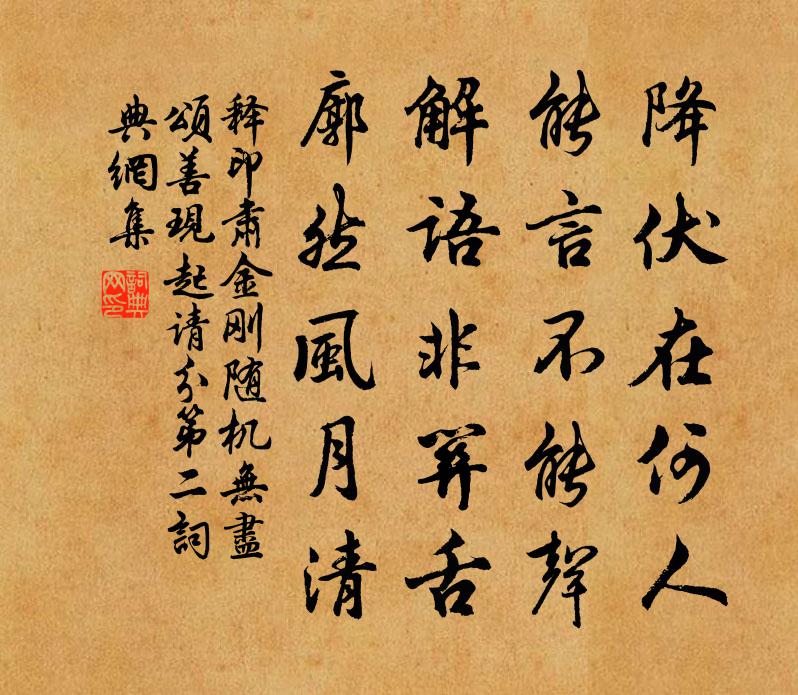 降伏在何人
能言不能聲
解語非笄舌
廓然風月清
释印肅金刚随机無盡
頌善現起请分第二詞
典網集
詞典
网印